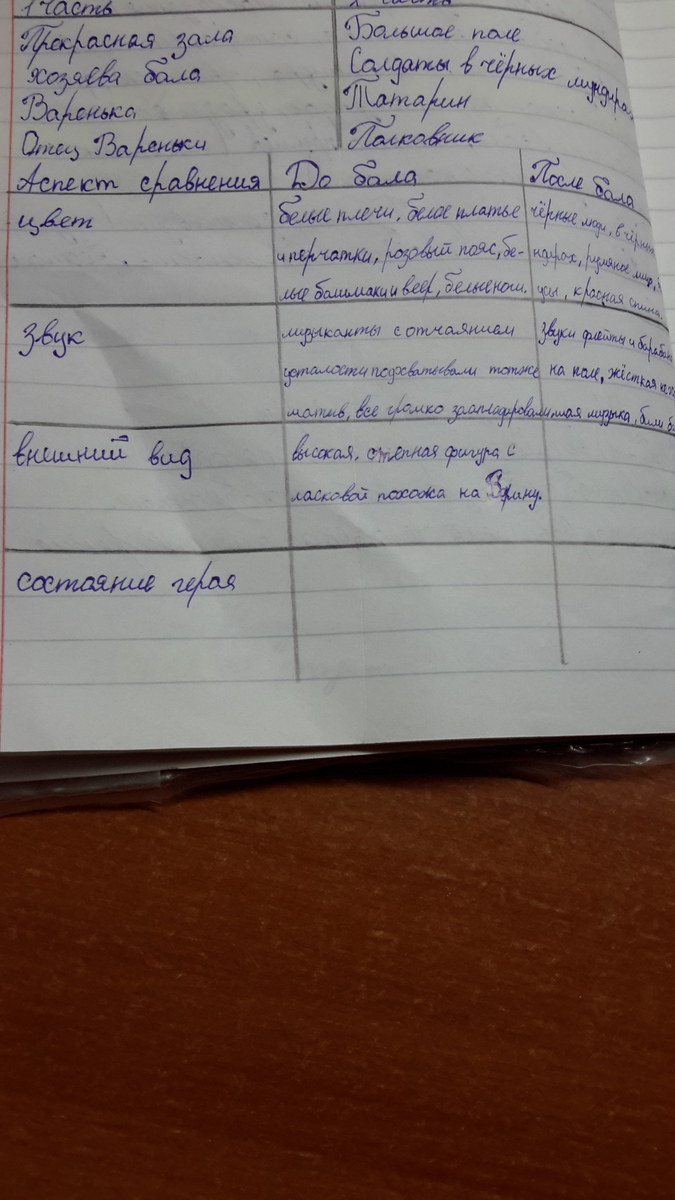 1 часть
Прекрасная зала
Большое поле
хозяева бала
Солдаты в чёрных мундирах
Варенька
Татарин
Отец Вареньки
Полковник
Аспект сравнения
До бала
После бала
цвет
белые плечи, белое платье
и перчатки, розовый пояс, бе-
лые башмаки и веер, белые
чёрные люди, в чёрных
румяное лицо,
усы, красная спина.
звук
музыканты с отчаянием
усталости подхватывали тот же
мотив, все громко зааплодировали
звуки флейты и барабана
на поле, жёсткая
музыка, били
внешний вид
высокая, фигура с
ласковой похожа на
состояние героя